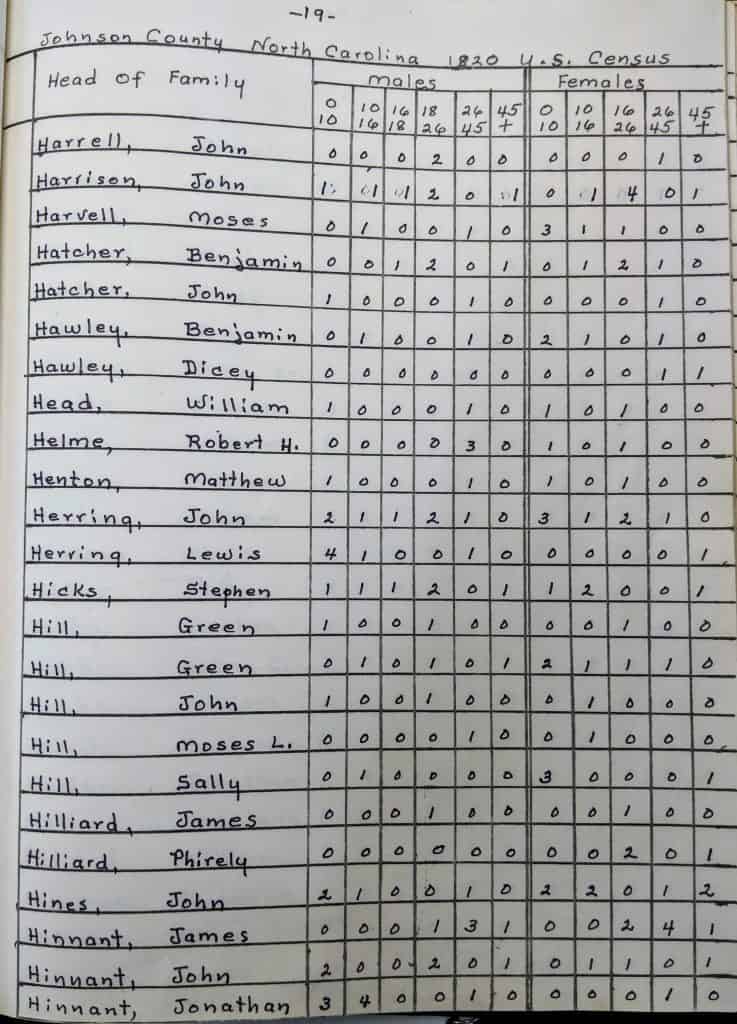 -19-
Johnson County North Carolina 1820 U.S. Census
Head of Family Males Females
0 10 16 18 26 45 0 10 16 26 45
10 16 18 26 45 + 10 16 26 45 +
Harrell, John 0 0 0 2 0 0 0 0 0 1 0
Harrison, John 1 1 1 2 0 1 0 1 4 0 1
Harvell, Moses 0 1 0 0 1 0 3 1 1 0 0
Hatcher, Benjamin 0 0 1 2 0 1 0 1 2 1 0
Hatcher, John 1 0 0 0 1 0 0 0 0 1 0
Hawley, Benjamin 0 1 0 0 1 0 2 1 0 1 0
Hawley, Dicey 0 0 0 0 0 0 0 0 0 1 1
Head, William 1 0 0 0 1 0 1 0 1 0 0
Helme, Robert H. 0 0 0 0 3 0 1 0 1 0 0
Henton, Matthew 1 0 0 0 1 0 1 0 1 0 0
Herring, John 2 1 1 2 1 0 3 1 2 1 0
Herring, Lewis 4 1 0 0 1 0 0 0 0 0 1
Hicks, Stephen 1 1 1 2 0 1 1 2 0 0 1
Hill, Green 1 0 0 1 0 0 0 0 1 0 0
Hill, Green 0 1 0 1 0 1 2 1 1 1 0
Hill, John 1 0 0 1 0 0 0 1 0 0 0
Hill, Moses L. 0 0 0 0 1 0 0 1 0 0 0
Hill, Sally 0 1 0 0 0 0 3 0 0 0 1
Hilliard, James 0 0 0 1 0 0 0 0 1 0 0
Hilliard, Phirely 0 0 0 0 0 0 0 0 2 0 1
Hines, John 2 1 0 0 1 0 2 2 0 1 2
Hinnant, James 0 0 0 1 3 1 0 0 2 4 1
Hinnant, John 2 0 0 2 0 1 0 1 1 0 1
Hinnant, Jonathan 3 4 0 0 1 0 0 0 0 1 0